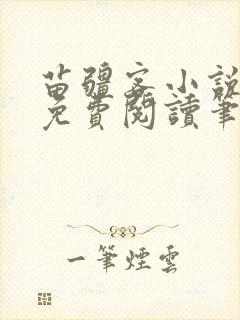 苗疆客小說
免費閱讀筆
一筆煙雲